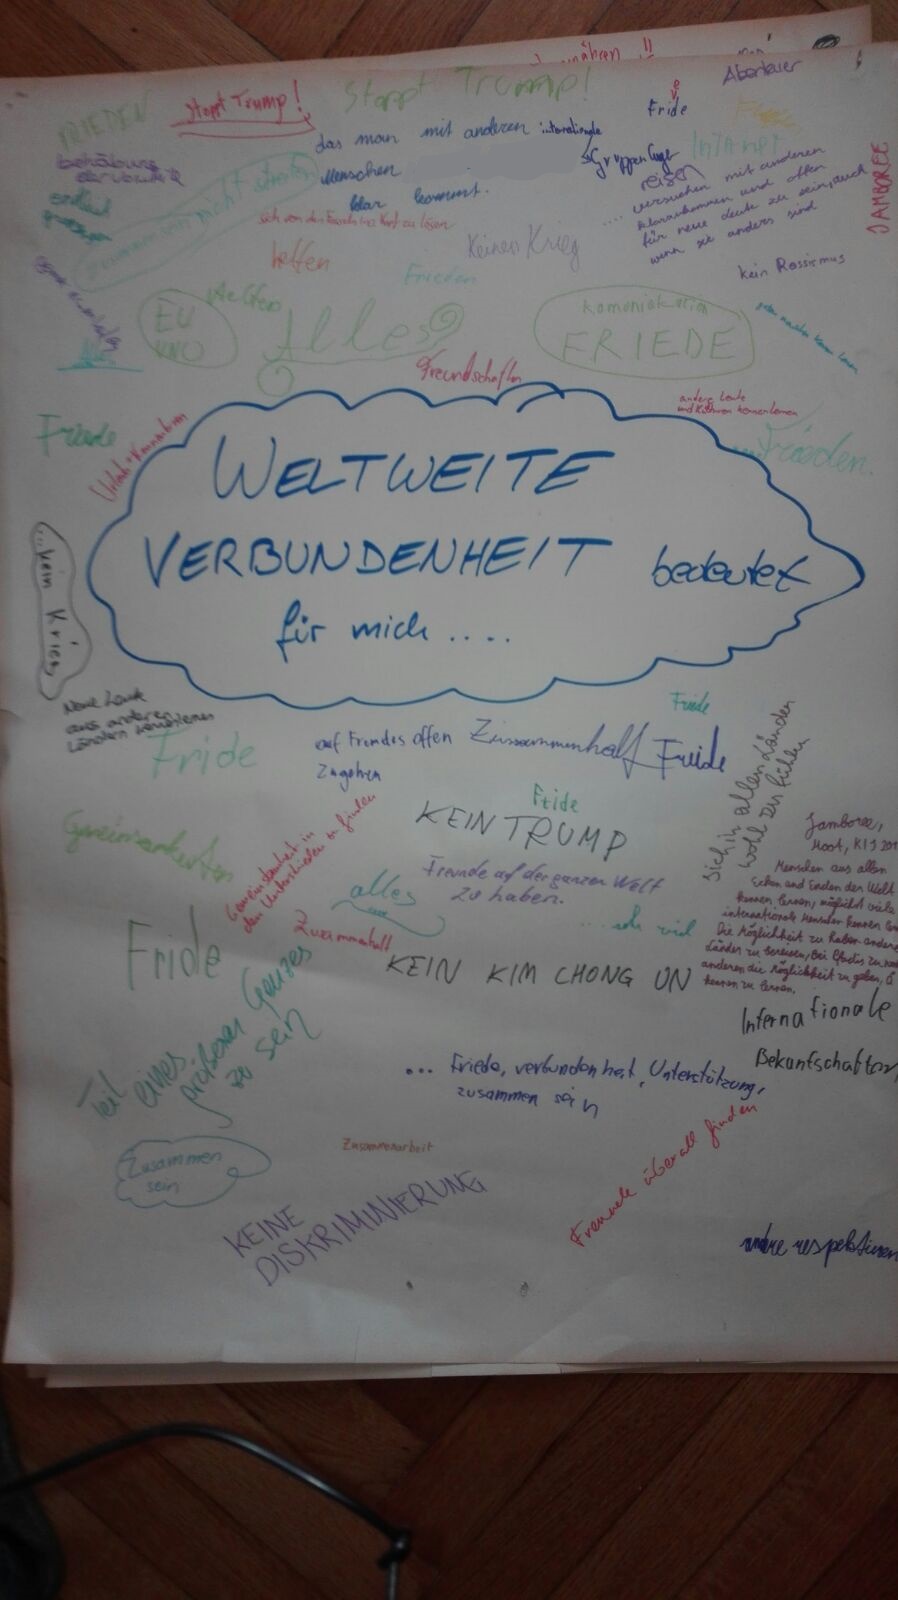 nähren !!
Abenteuer
FRIEDEN
Stoppt Trump!
Stoppt Trump!
e
Fride
das man mit anderen internationale
Menschen
klar kommt.
Internet
reisen
.... versuchen mit anderen
klarzukommen und offen
für neue Leute zu sein, auch
wenn sie anders sind
JAMBOREE
zusammen nicht streiten
helfen
Keinen Krieg
Frieden
kein Rassismus
EU
UNO
Helfen
Alles
Komonikation
FRIEDE
Freundschaften
andere Leute
und Kulturen kennenlernen
Friede
Frieden.
WELTWEITE
VERBUNDENHEIT bedeutet
für mich ....
...kein Krieg
Neue Leute
aus anderen
Ländern kennenlernen
Friede
Fride
auf Fremdes offen
zugehen
Zusammenhalt
Friede
sich in allen Ländern
wohl zu fühlen
Fride
KEIN TRUMP
Gemeinsamkeiten
Gemeinsamkeit in
den Unterschieden zu finden
Freunde auf der ganzen Welt
zu haben.
alles
...sehr viel
Zusammenhalt
Jamboree,
Moot, KIJ 201
Menschen aus allen
Ecken und Enden der Welt
kennen lernen, möglichst viele
internationale Menschen kennen
Die Möglichkeit zu haben andere
Länder zu bereisen,
anderen die Möglichkeit zu geben,
kennen zu lernen.
Fride
KEIN KIM CHONG UN
Internationale
Bekantschaften
Teil eines
größeren Ganzes
zu sein
... Friede, verbundenheit, Unterstützung,
zusammen sein
Zusammenarbeit
Zusammen
sein
KEINE
DISKRIMINIERUNG
Freunde überall finden
andere respektieren